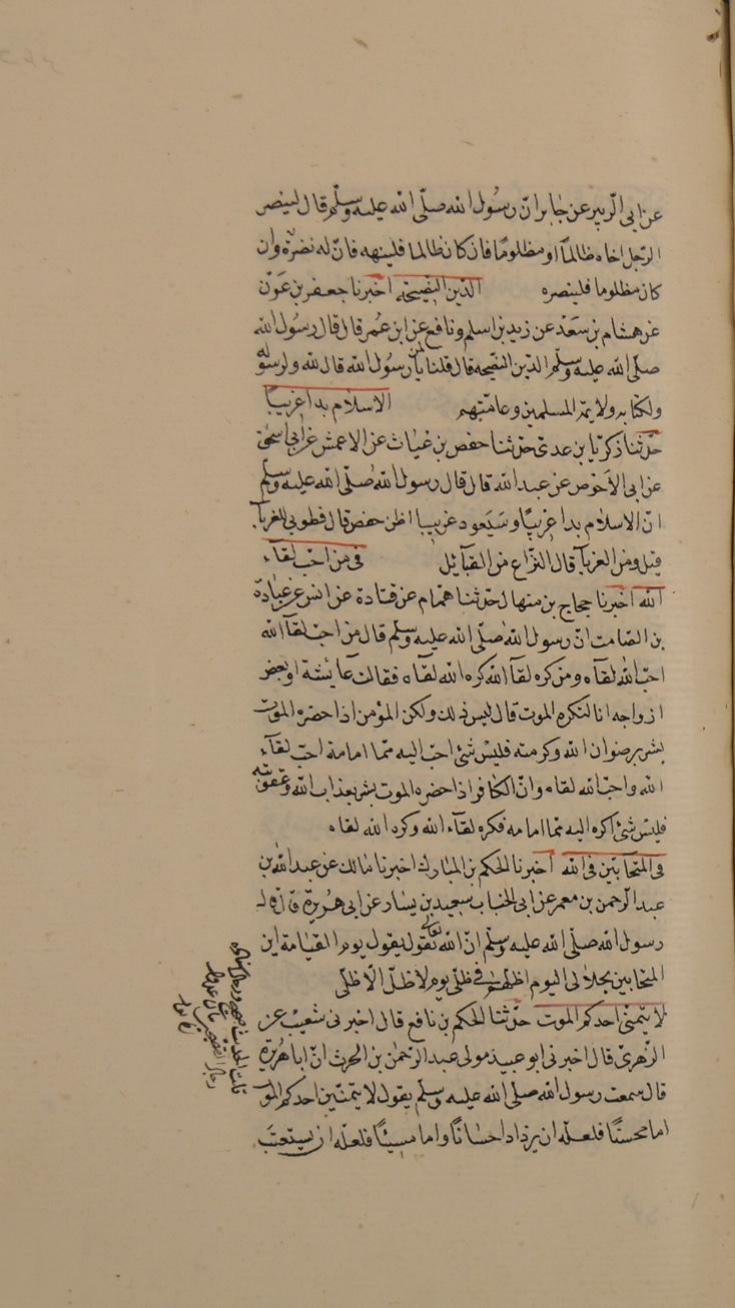 عن ابى الزبير عن جابر ان رسول الله صلى الله عليه وسلم قال لينصر
الرجل اخاه ظالما او مظلوما فان كان ظالما فلينهه فانه له نصرة وان
كان مظلوما فلينصره الدين النصيحة اخبرنا جعفر بن عون
عن هشام بن سعد عن زيد بن اسلم ونافع عن ابن عمر قال قال رسول الله
صلى الله عليه وسلم الدين النصيحة قال قلنا لمن يا رسول الله قال لله ولرسوله
ولكتابه ولايمة المسلمين وعامتهم الاسلام بدا غريبا
حدثنا زكريا بن عدى حدثنا حفص بن غياث عن الاعمش عن ابى اسحق
عن ابى الاحوص عن عبد الله قال قال رسول الله صلى الله عليه وسلم
ان الاسلام بدا غريبا وسيعود غريبا اظن حفص قال فطوبى للغربآ
قيل ومن الغربآ قال النزاع من القبائل فى من احب لقآء
الله اخبرنا حجاج بن منهال حدثنا همام عن قتادة عن انس عن عبادة
بن الصامت ان رسول الله صلى الله عليه وسلم قال من احب لقآ الله
احب الله لقآه ومن كره لقآ الله كره الله لقاه فقالت عايشة او بعض
ازواجه انا لنكره الموت قال ليس ذلك ولكن المؤمن اذا حضره الموت
بشر برضوان الله وكرمته فليس شئ احب اليه مما امامه احب لقآء
الله واحب الله لقاه وان الكافر اذا حضره الموت بشر بعذاب الله وعقوبته
فليس شئ اكره اليه مما امامه فكره لقآء الله وكره الله لقاه
فى المتحابين فى الله اخبرنا الحكم بن المبارك اخبرنا مالك عن عبد الله بن
عبد الرحمن بن معمر عن ابى الحباب سعيد بن يسار عن ابى هريرة قال قال
رسول الله صلى الله عليه وسلم ان الله تعالى يقول يوم القيامة اين
المتحابين بجلالى اليوم اظلهم فى ظلى يوم لا ظل الا ظلى
لا يتمنى احدكم الموت حدثنا الحكم بن نافع قال اخبرنى شعيب عن
الزهرى قال اخبرنى ابو عبيد مولى عبد الرحمن بن الحرث ان ابا هريرة
قال سمعت رسول الله صلى الله عليه وسلم يقول لا يتمنين احدكم الموت
اما محسنا فلعله ان يزداد احسانا واما مسيئا فلعله ان يستعتب